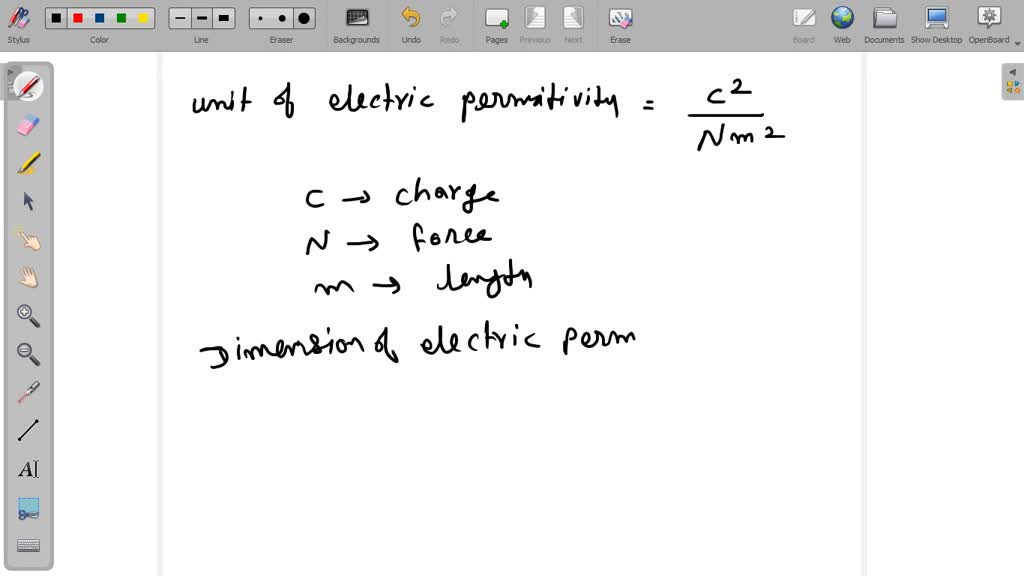 Stylus Color Line Eraser Backgrounds Undo Redo Pages Previous Next Erase Board Web Documents Show Desktop OpenBoard
unit of electric permitivity = C²
Nm²
C → charge
N → force
m → length
Dimension of electric perm
AI